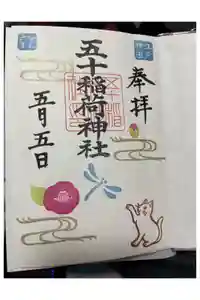 奉拝
五十稲荷神社
五月五日